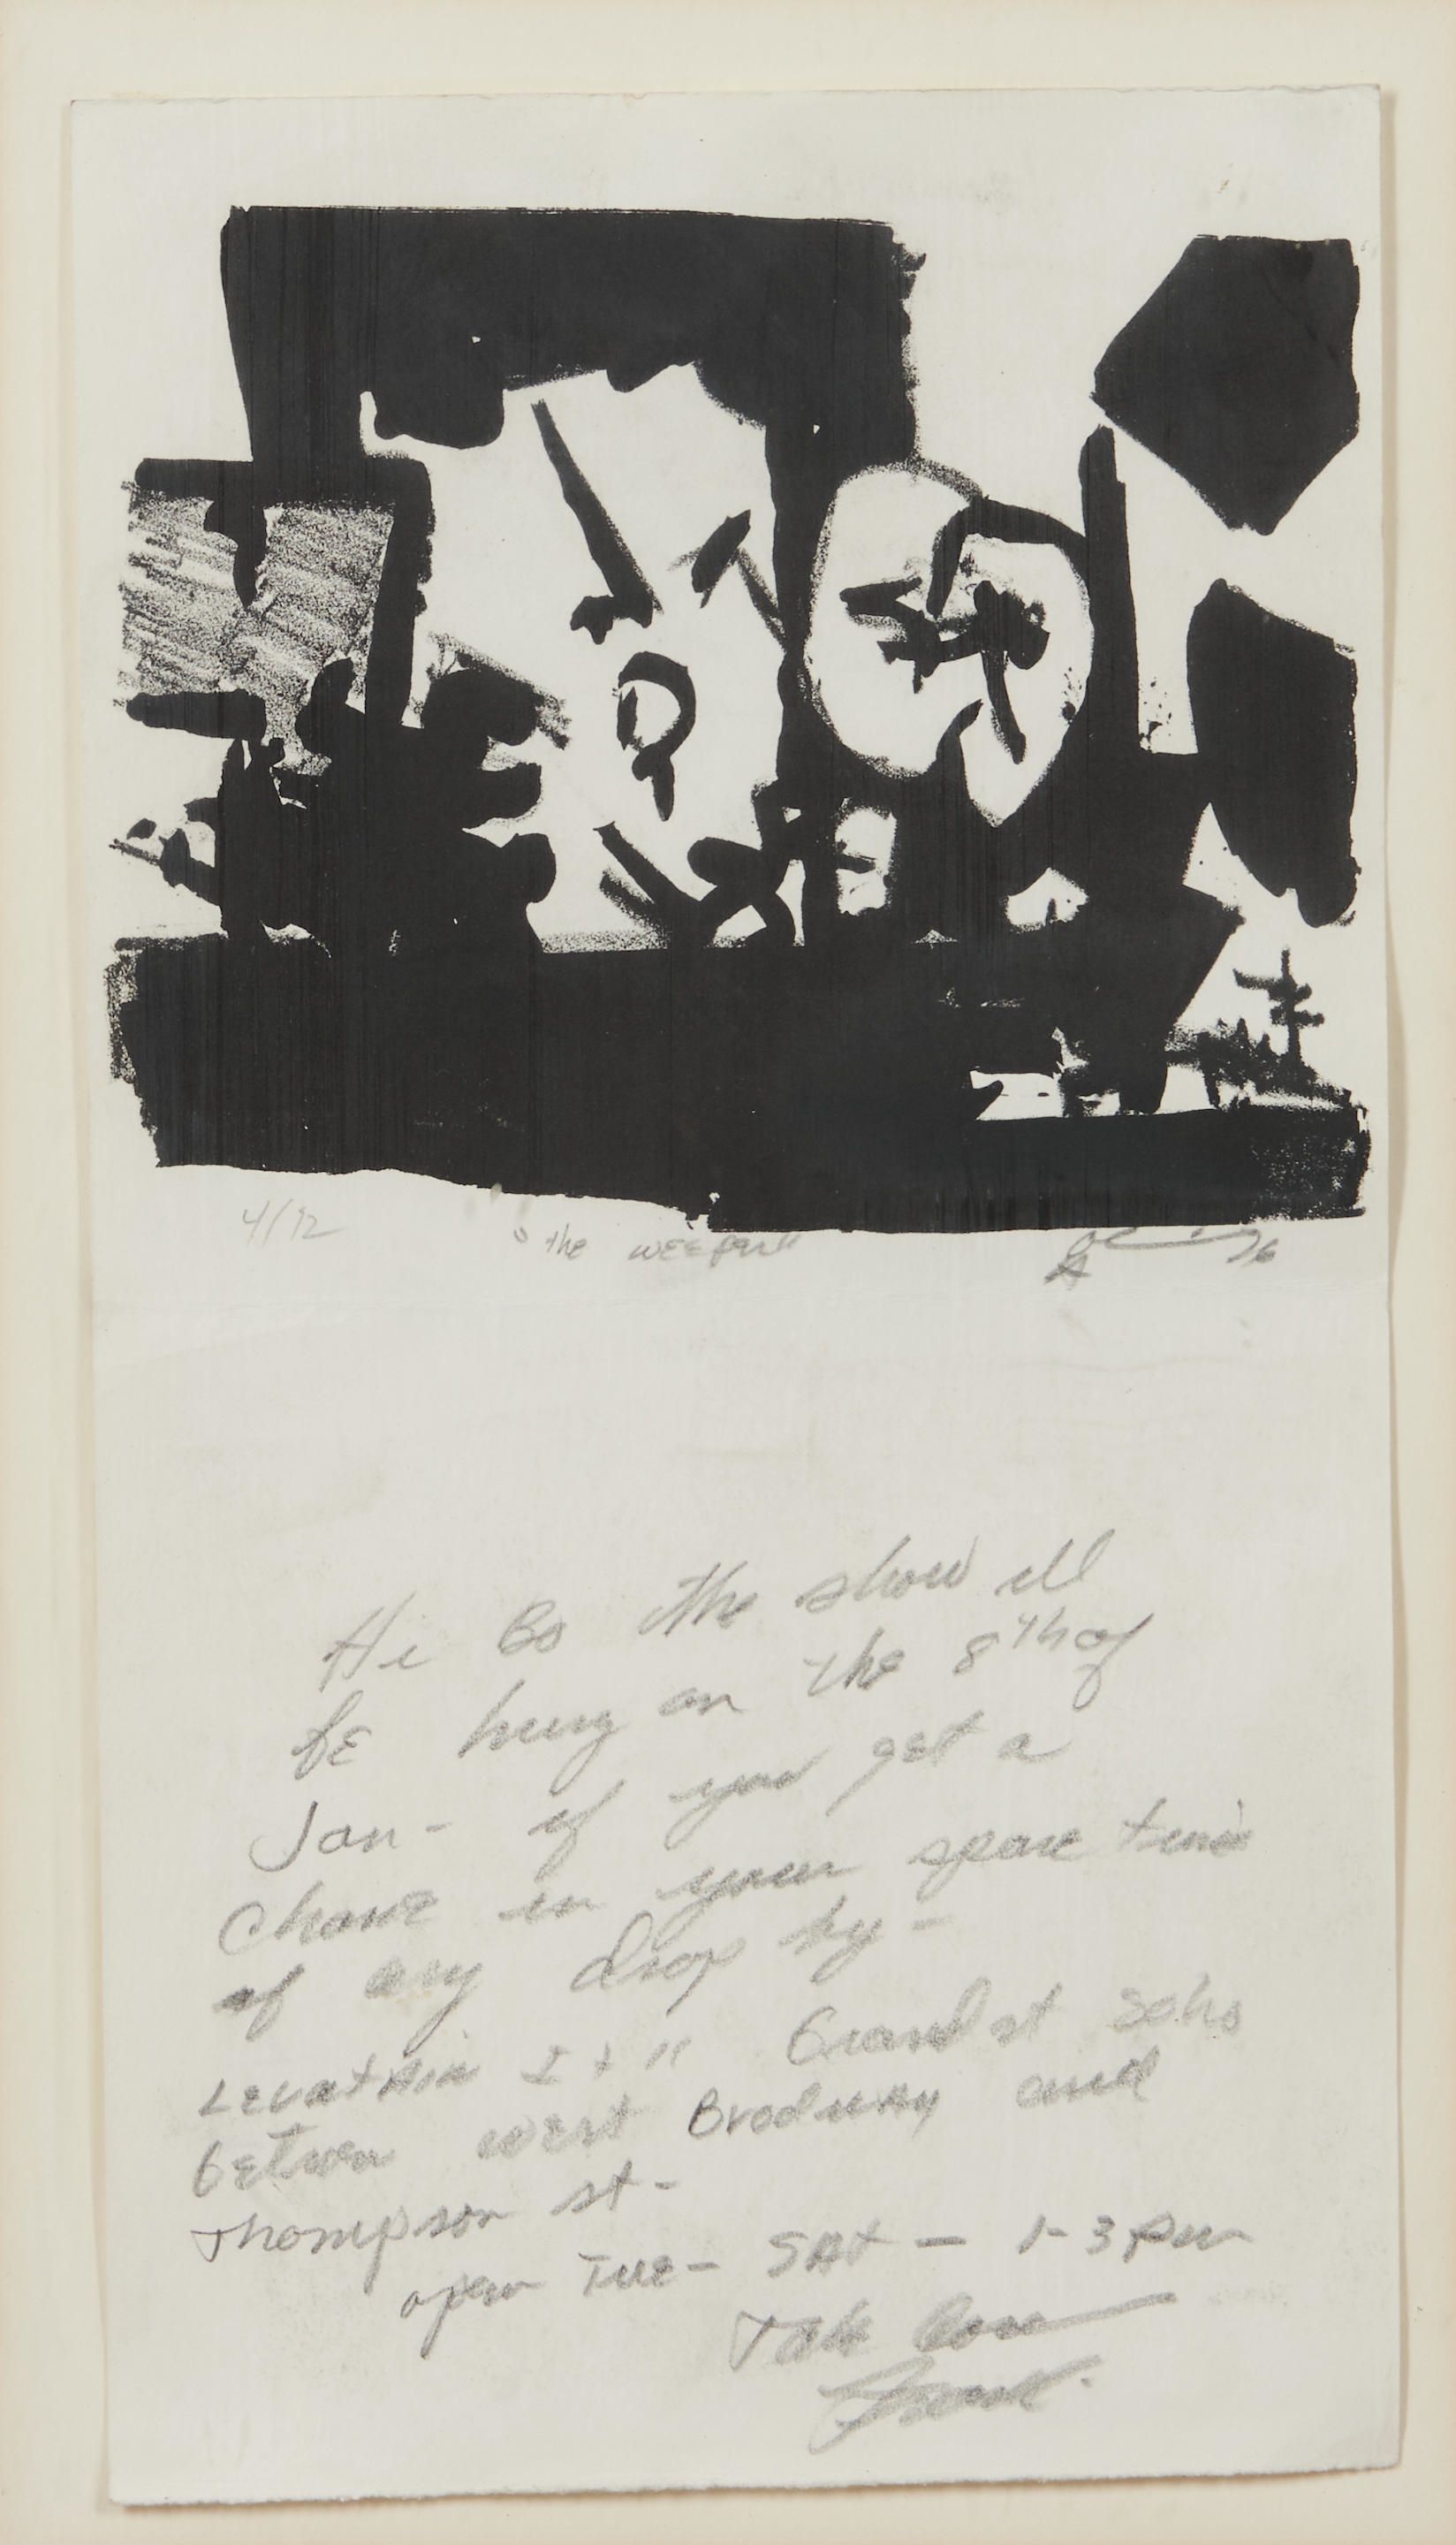 4/12
"the weepers"
76
Hi Bo the show ill
be hung on the 8th of
Jan- if you get a
chance in your spare time
if any drop by-
Leviathin I + II Grand st Soho
between west Brodway and
Thompson st-
open Tue- SAt - 1-3 pm
Take Care
Frank.